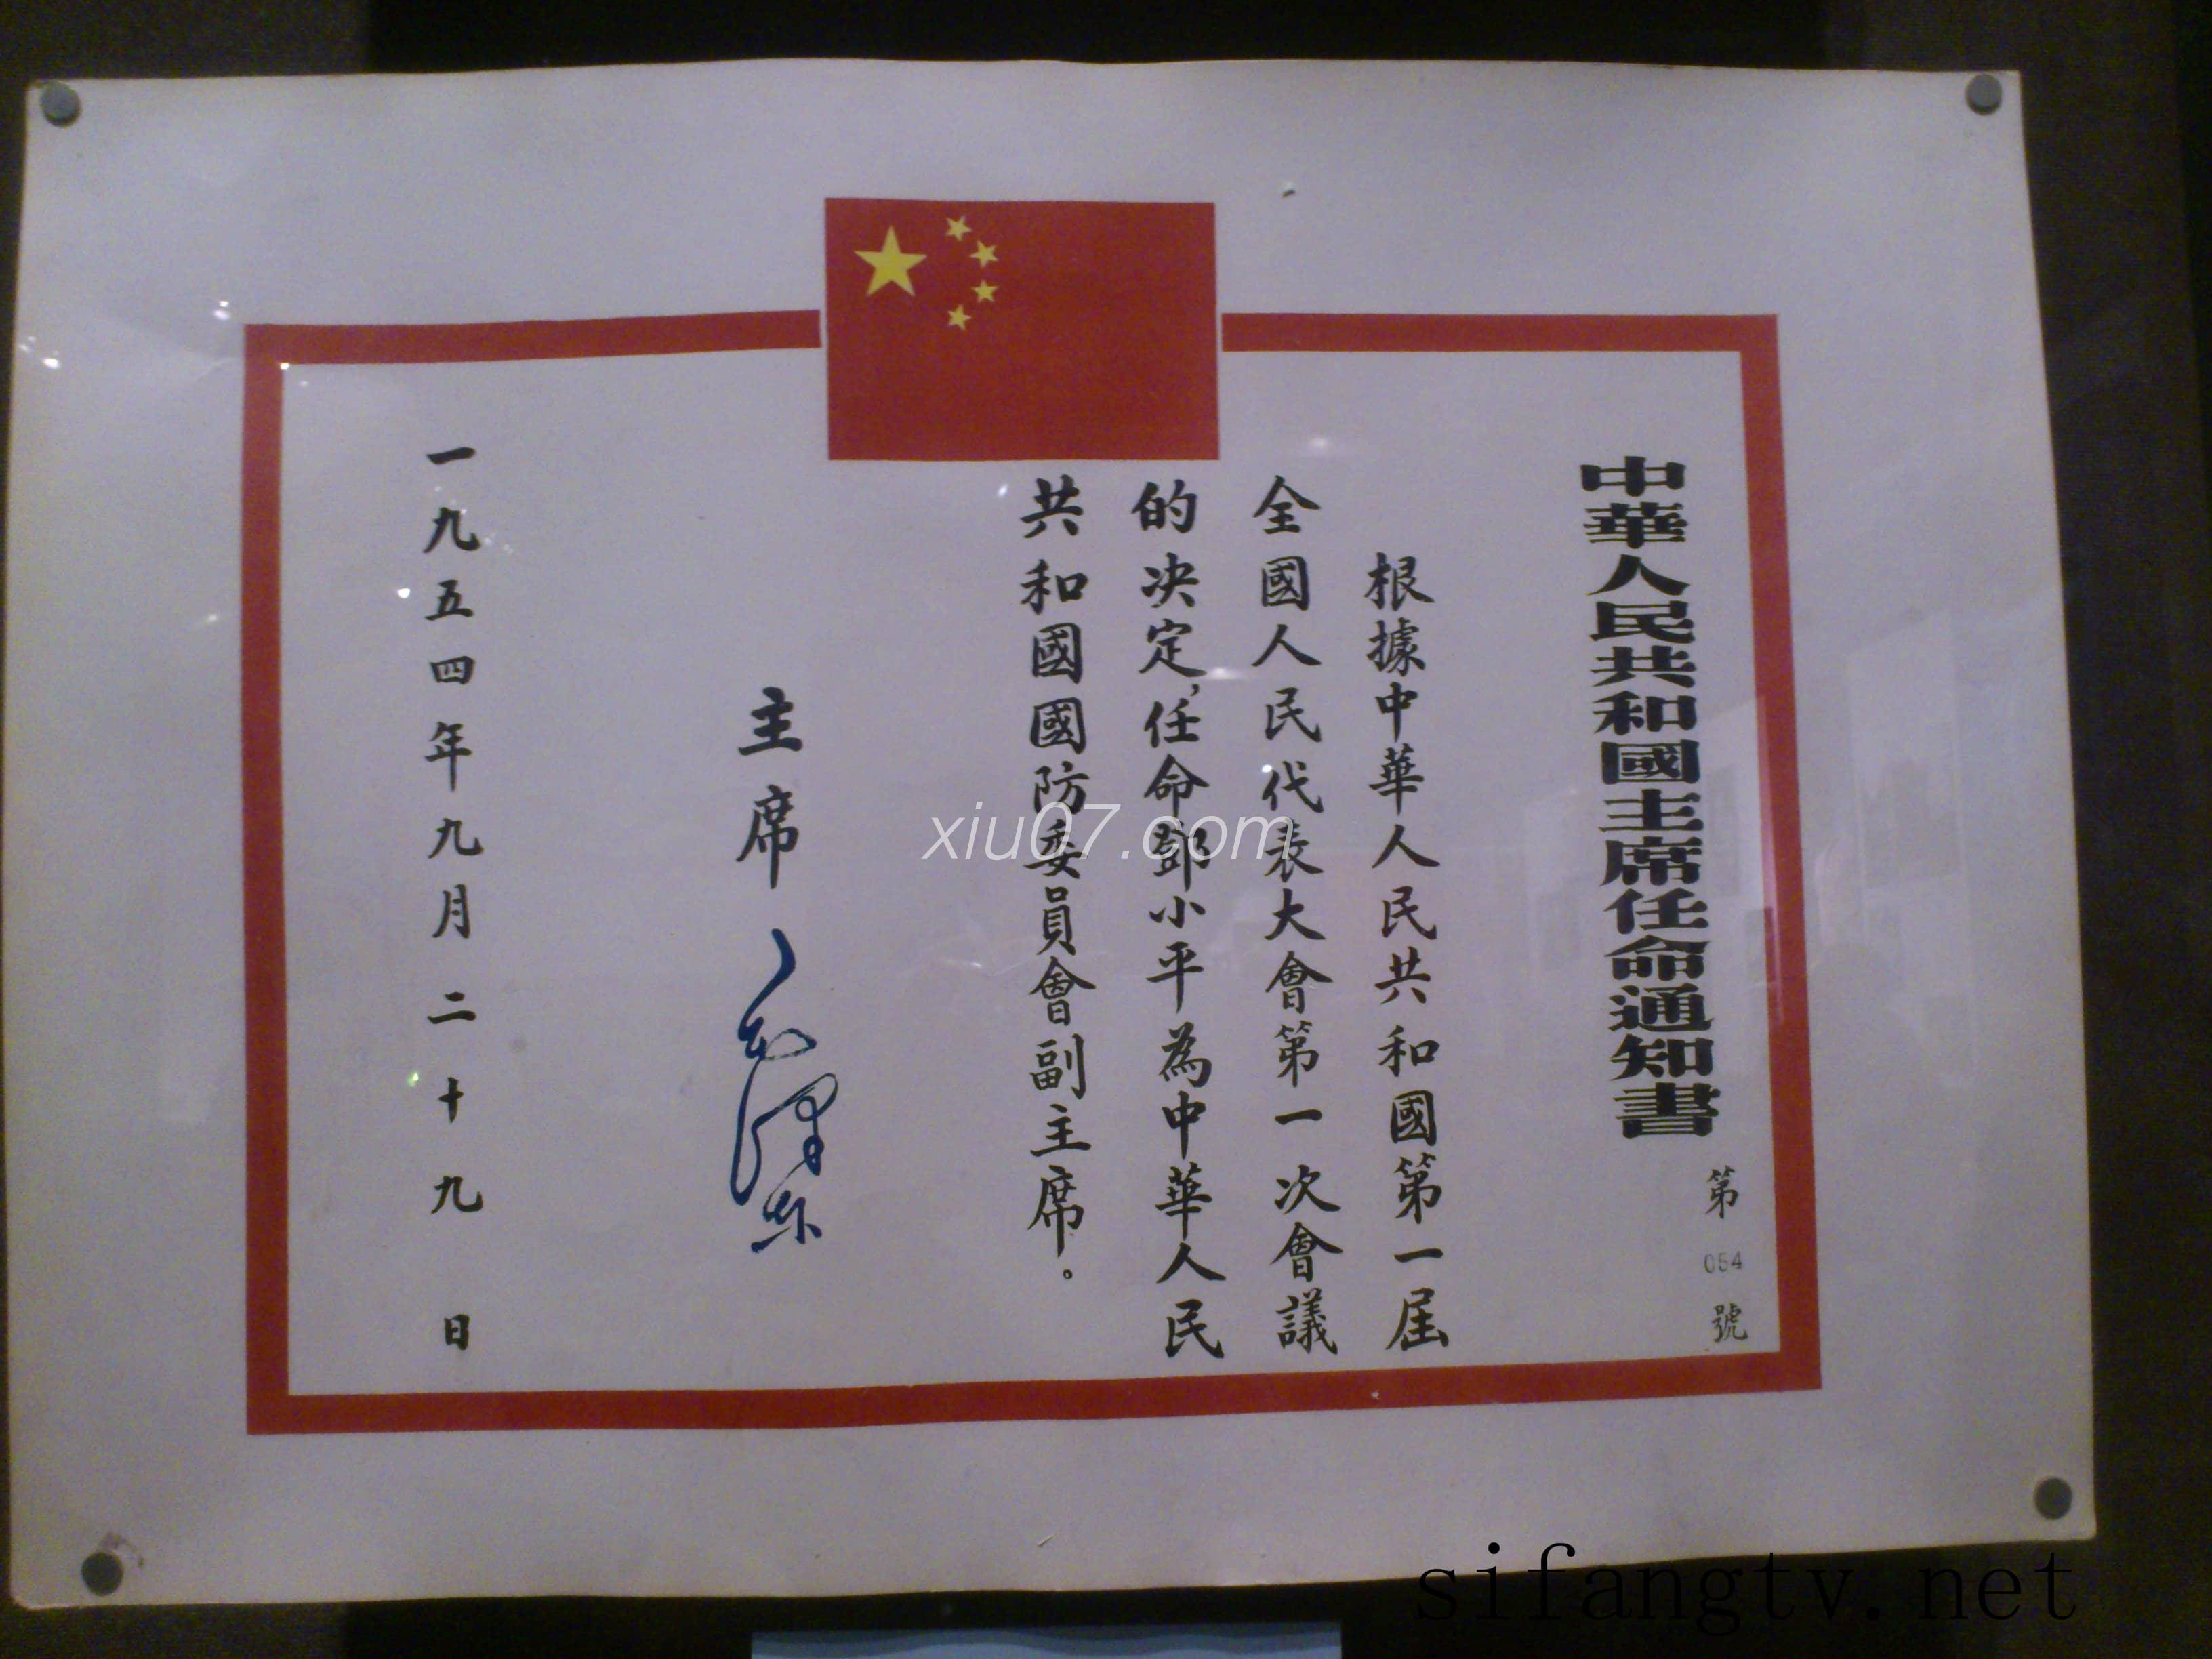 中華人民共和國主席任命通知書
第 054 號
根據中華人民共和國第一屆
全國人民代表大會第一次會議
的决定,任命鄧小平為中華人民
共和國國防委員會副主席。
主席 毛澤东
一九五四年九月二十九日
xiu07.com
sifangtv.net